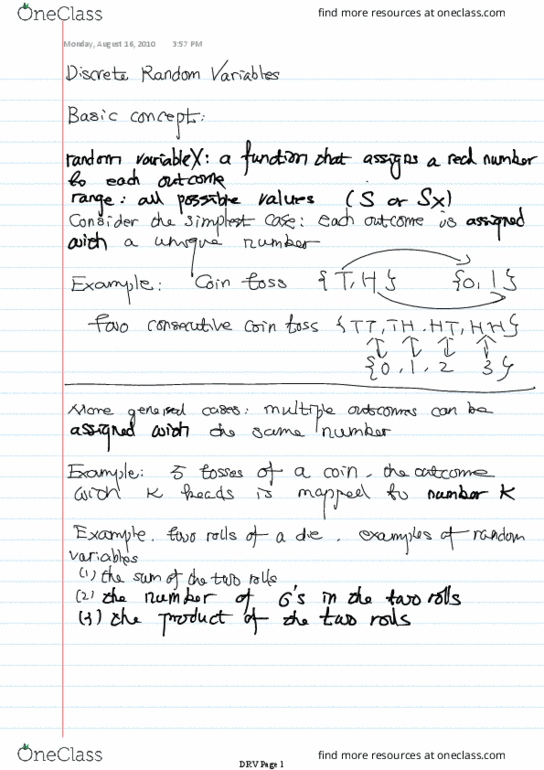 OneClass
find more resources at oneclass.com
Monday, August 16, 2010 3:57 PM
Discrete Random Variables
Basic concept:
random variable X: a function that assigns a real number
to each outcome
range: all possible values (S or Sx)
Consider the simplest case: each outcome is assigned
with a unique number
Example: Coin toss {T, H} {0, 1}
two consecutive coin toss {TT, TH, HT, HH}
{0, 1, 2 3}
More general cases: multiple outcomes can be
assigned with the same number
Example: 5 tosses of a coin. the outcome
with K heads is mapped to number K
Example. two rolls of a die. examples of random
variables
(1) the sum of the two rolls
(2) the number of 6's in the two rolls
(3) the product of the two rolls
OneClass
DRV Page 1
find more resources at oneclass.com